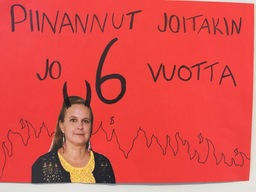 PIINANNUT JOITAKIN
JO 6 VUOTTA